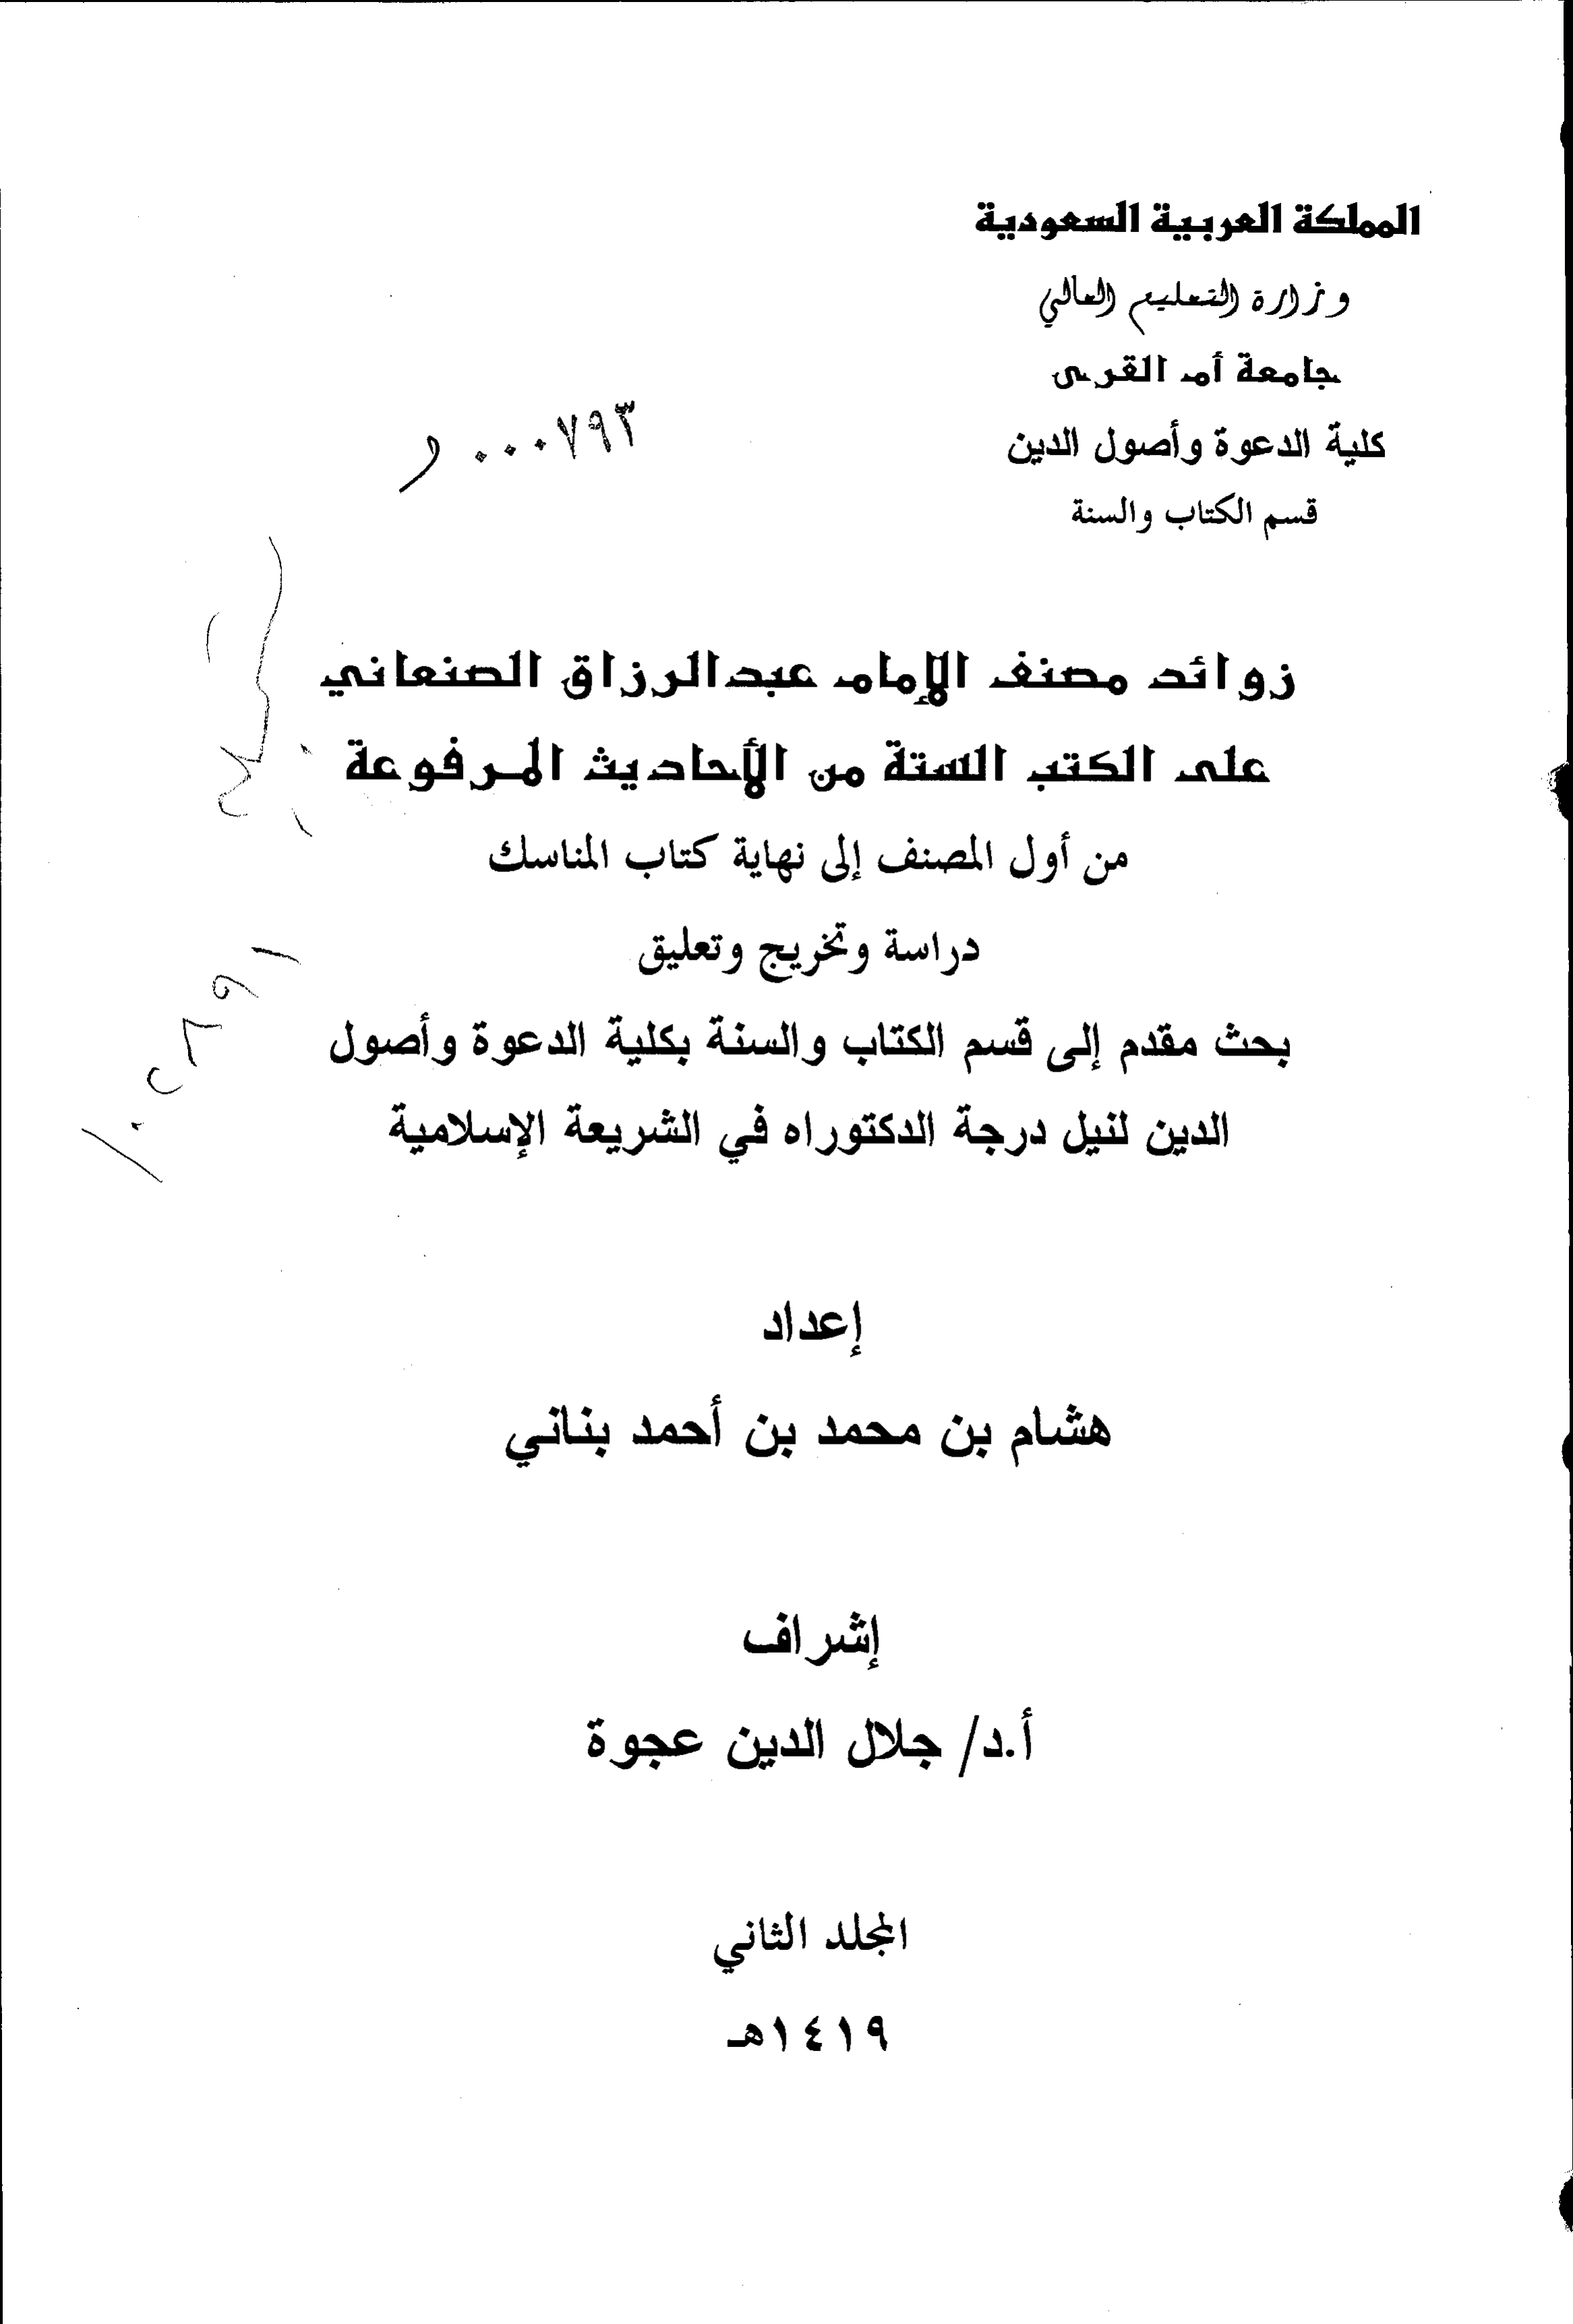 المملكة العربية السعودية
وزارة التعليم العالي
جامعة أم القرى
٠٠٠٧٩٣
كلية الدعوة وأصول الدين
قسم الكتاب والسنة
زوائد مصنف الإمام عبدالرزاق الصنعاني
على الكتب الستة من الأحاديث المرفوعة
من أول المصنف إلى نهاية كتاب المناسك
دراسة وتخريج وتعليق
بحث مقدم إلى قسم الكتاب والسنة بكلية الدعوة وأصول
الدين لنيل درجة الدكتوراه في الشريعة الإسلامية
إعداد
هشام بن محمد بن أحمد بناني
إشراف
أ.د/ جلال الدين عجوة
المجلد الثاني
١٤١٩هـ